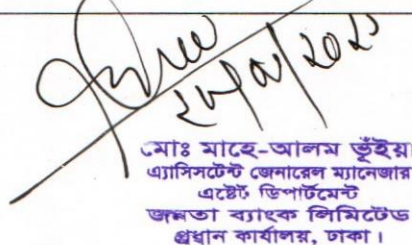 মোঃ মাহে-আলম ভূঁইয়া
এ্যাসিসটেন্ট জেনারেল ম্যানেজার
এষ্টেট ডিপার্টমেন্ট
জনতা ব্যাংক লিমিটেড
প্রধান কার্যালয়, ঢাকা।